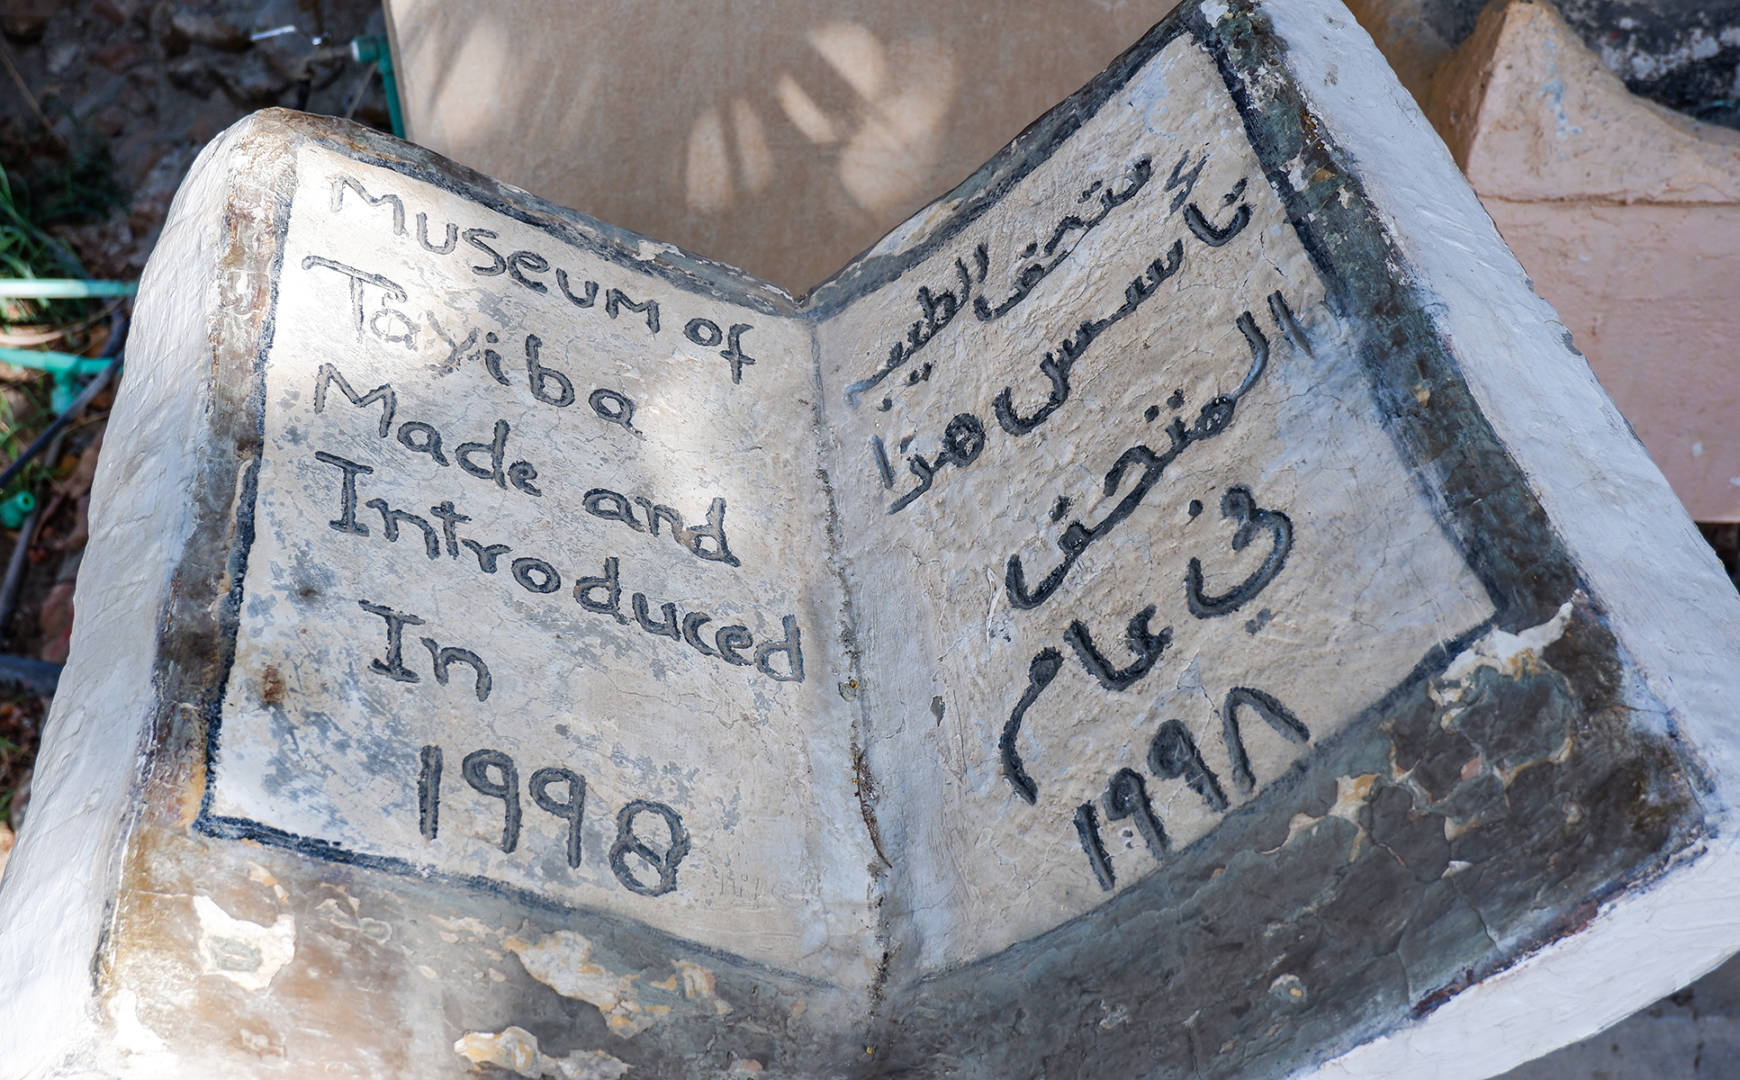 Museum of
Tayiba
Made and
Introduced
In
1998
متحف الطيبة
تأسس هذا
المتحف
في عام
١٩٩٨